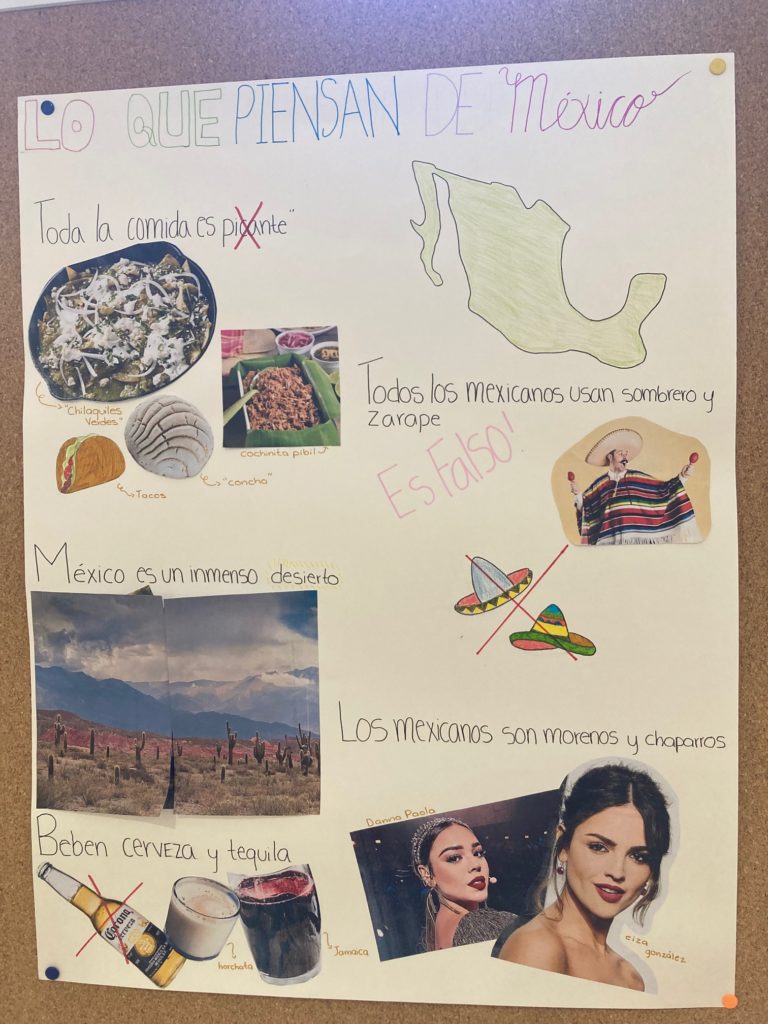 LO QUE PIENSAN DE México
Toda la comida es picante"
"Chilaquiles
Verdes"
Tacos
"concha"
cochinita pibil
Todos los mexicanos usan sombrero y
zarape
Es Falso!
México es un inmenso desierto
Los mexicanos son morenos y chaparros
Danna Paola
eiza
gonzález
Beben cerveza y tequila
Corona
Cerveza
horchata
Jamaica